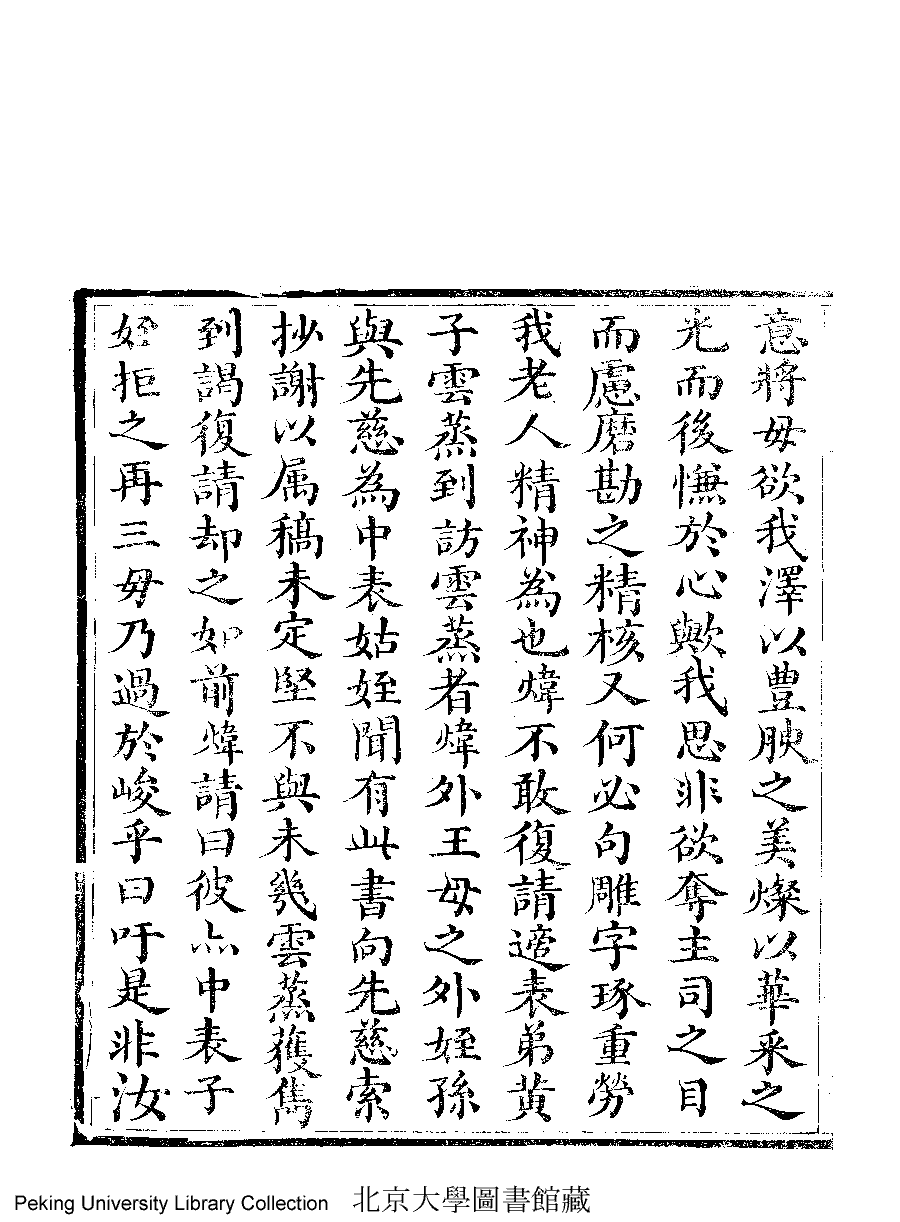 意將毋欲我澤以豊腴之美燦以華采之
光而後慊於心歟我思非欲奪主司之目
而慮磨勘之精核又何必句雕字琢重勞
我老人精神為也煒不敢復請適表弟黃
子雲蒸到訪雲蒸者煒外王母之外姪孫
與先慈為中表姑姪聞有此書向先慈索
抄謝以属稿未定堅不與未幾雲蒸獲雋
到謁復請却之如前煒請曰彼亦中表子
姪拒之再三毋乃過於峻乎曰吁是非汝
Peking University Library Collection 北京大學圖書館藏